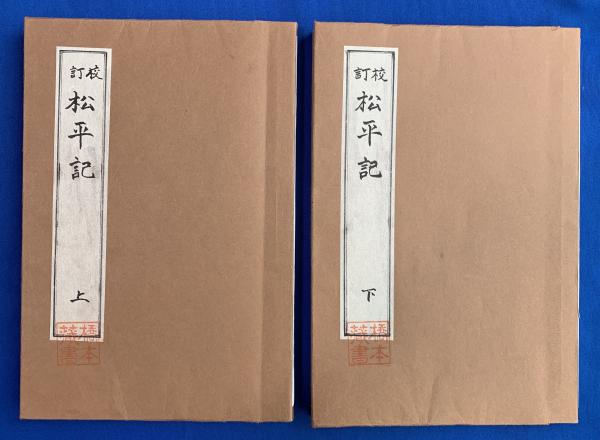 校訂
松平記
上
橋本
蔵書
校訂
松平記
下
橋本
蔵書